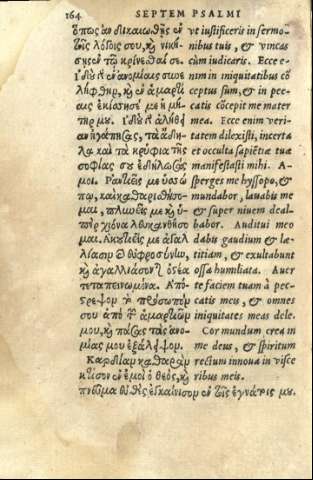 164 SEPTEM PSALMI
ὅπως ἂν δικαιωθῇς ἐν
τοῖς λόγοις σου, ϗ νική-
σῃς ἐν τῷ κρίνεσθαί σε.
Ἰδοὺ γὰρ ἐν ἀνομίαις συνε
λήφθην, ϗ ἐν ἁμαρτί
αις ἐκίσσησέ με ἡ μή
τηρ μου. Ἰδοὺ γὰρ ἀλήθει
αν ἠγάπησας, τὰ ἄδη-
λα καὶ τὰ κρύφια τῆς
σοφίας σου ἐδήλωσάς
μοι. Ῥαντιεῖς με ὑσσώ
πῳ, καὶ καθαρισθήσο-
μαι, πλυνεῖς με ϗ ὑ-
πὲρ χιόνα λευκανθήσο
μαι. Ἀκουτιεῖς με ἀγαλ
λίασιν ϗ εὐφροσύνην,
ϗ ἀγαλλιάσονται ὀστέα
τεταπεινωμένα. Ἀπό-
στρεψον τὸ πρόσωπόν
σου ἀπὸ τῶν ἁμαρτιῶν
μου, ϗ πάσας τὰς ἀνο-
μίας μου ἐξάλειψον.
Καρδίαν καθαρὰν
κτίσον ἐν ἐμοὶ ὁ θεός, ϗ
πνεῦμα εὐθὲς ἐγκαίνισον ἐν τοῖς ἐγκάτοις μου.
ut iustificeris in sermo-
nibus tuis, & vincas
cùm iudicaris. Ecce e-
nim in iniquitatibus cõ
ceptus sum, & in pec-
catis cõcepit me mater
mea. Ecce enim veri-
tatem dilexisti, incerta
et occulta sapiẽtiæ tuæ
manifestasti mihi. A-
sperges me hyssopo, &
mundabor, lauabis me
& super niuem deal-
babor. Auditui meo
dabis gaudium & læ-
titiam, & exultabunt
ossa humiliata. Auer
te faciem tuam à pec-
catis meis, & omnes
iniquitates meas dele.
Cor mundum crea in
me deus, & spiritum
rectum innoua in visce
ribus meis.